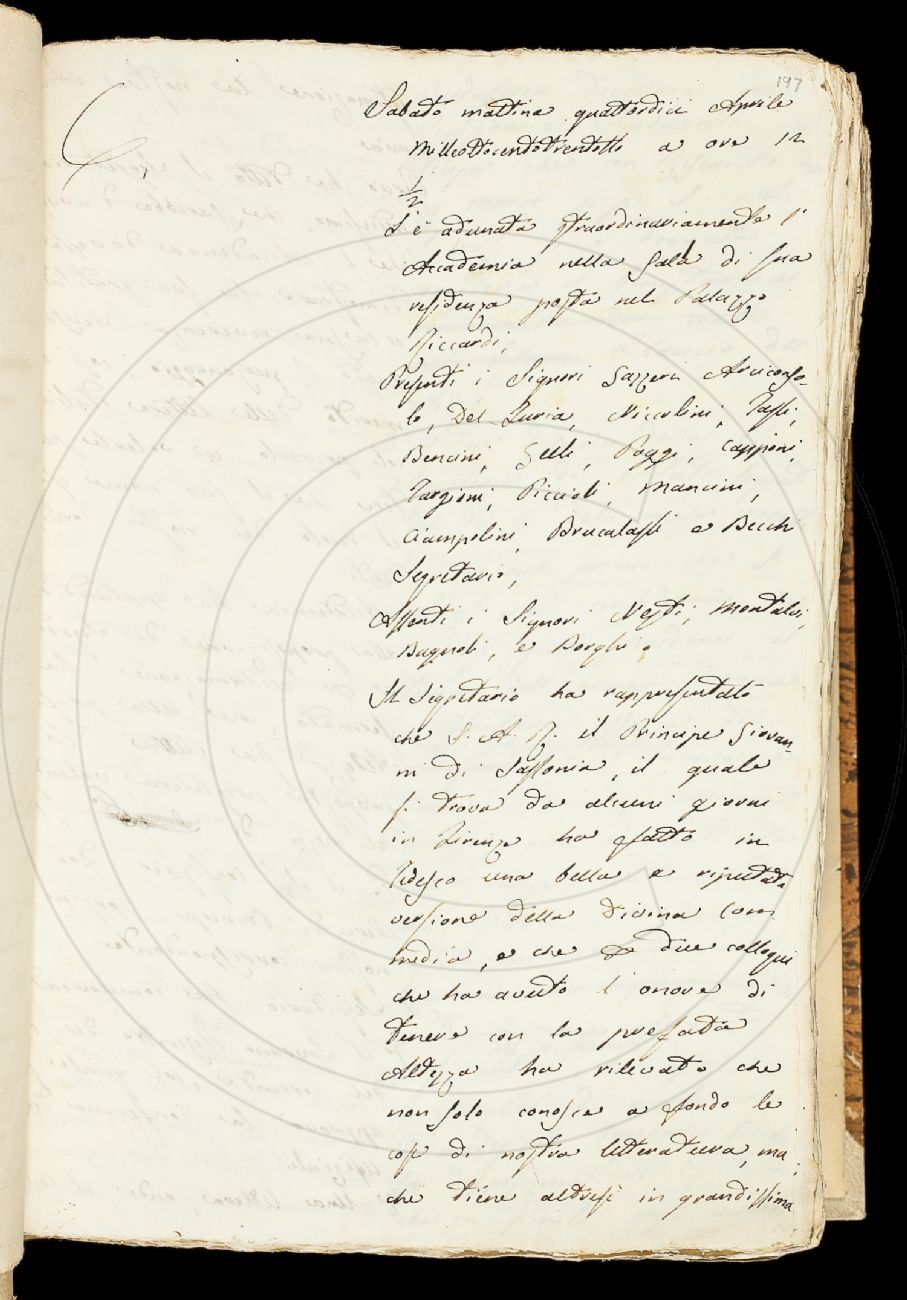 197
Sabato mattina quattordici Aprile
Milleottocentotrentotto a ore 12
1/2
S'è adunata straordinariamente l'
Accademia nella Sala di sua
residenza posta nel Palazzo
Riccardi,
Presenti i Signori Gazzeri Arciconso-
lo, Del Furia, Niccolini, Tassi,
Bencini, Gelli, Poggi, Capponi,
Targioni, Piccioli, Mancini,
Ciampolini, Brucalassi e Becchi
Segretario,
Assenti i Signori Nesti, Montalvi,
Bagnoli, e Borghi.
Il Segretario ha rappresentato
che S. A. R. il Principe Giovan-
ni di Sassonia, il quale
si trova da alcuni giorni
in Firenze ha fatto in
Tedesco una bella e riputata
versione della Divina Com
media, e che due colloqui
che ha avuto l'onore di
tenere con la prefata
Altezza ha rilevato che
non solo conosce a fondo le
cose di nostra letteratura, ma
che tiene altresì in grandissima